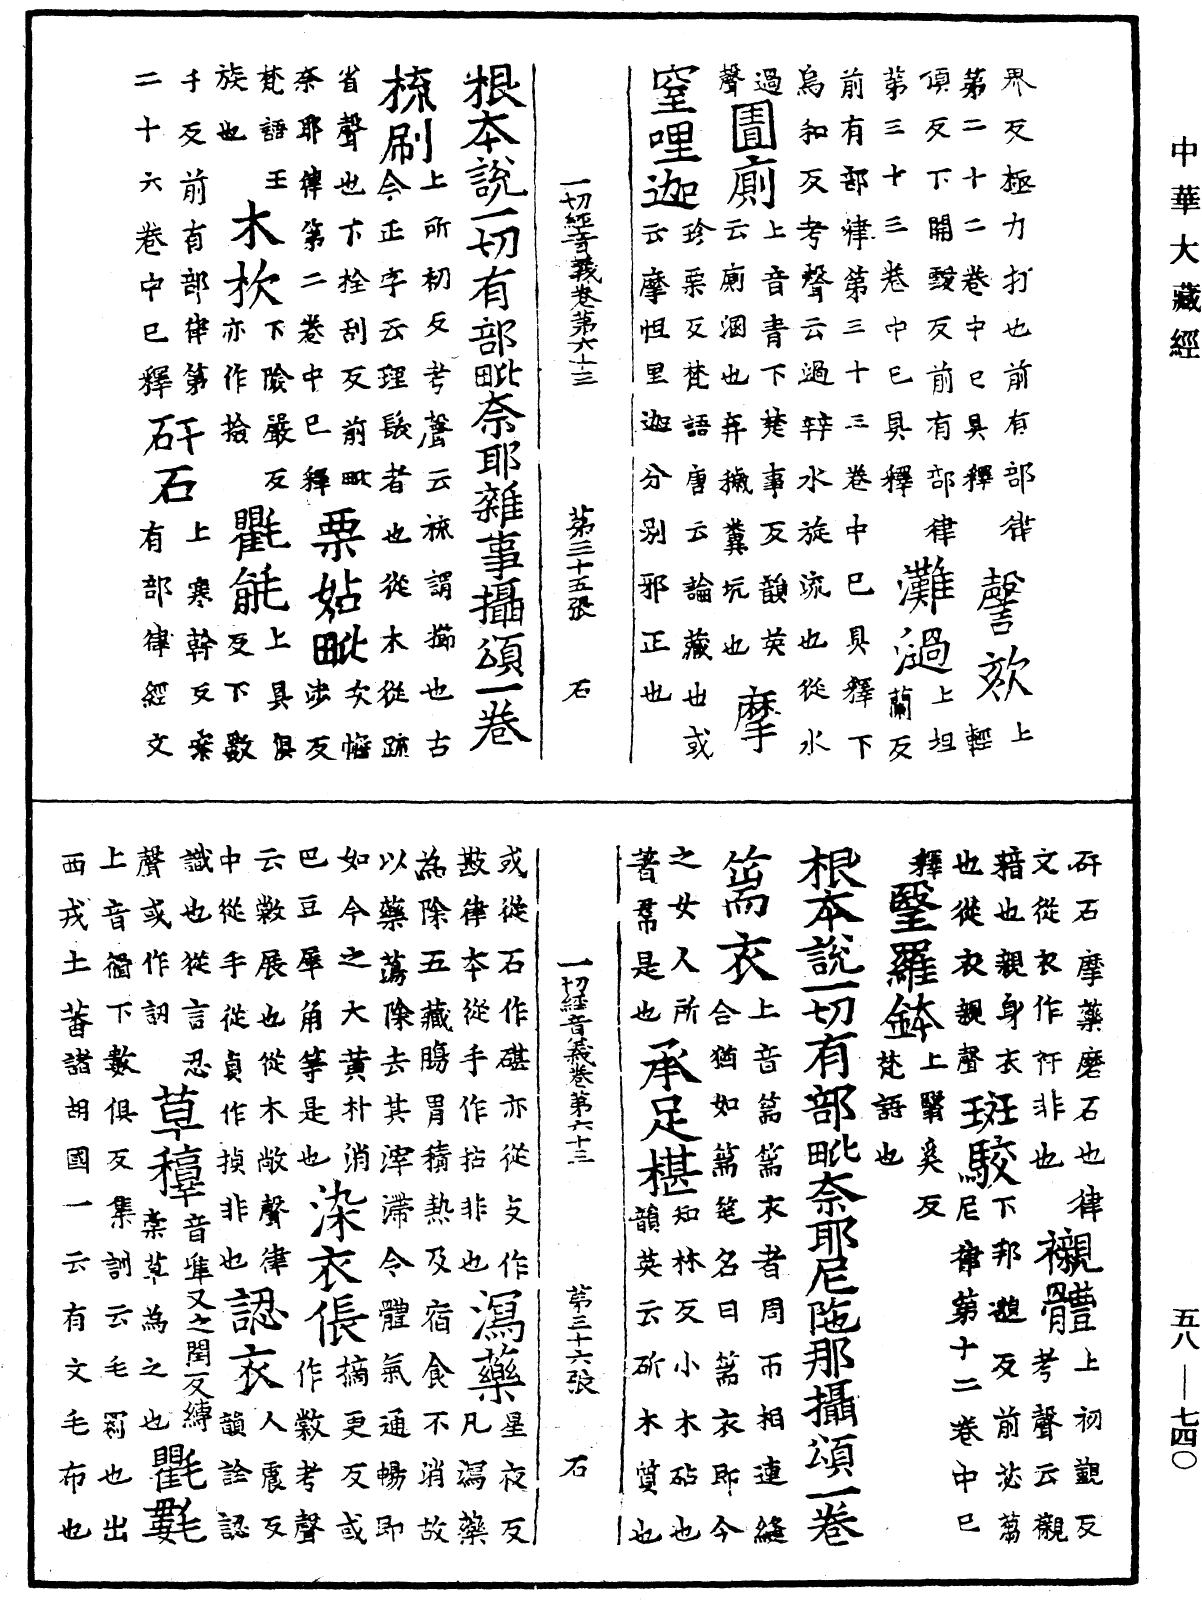 中華大藏經
界反極力打也前有部律
第二十二卷中已具釋
謦欬上輕
項反下開毄反前有部律
第三十三卷中已具釋
灘渦上坦蘭反
前有部律第三十三卷中已具釋下
烏和反考聲云過辛水旋流也從水
過聲
圊廁上音青下楚事反韻英
云廁溷也弃穢糞坑也
摩窒哩迦珍栗反梵語唐云論藏也或
云摩怛里迦分別邪正也
一切經音義卷第六十三 第三十五張 石
根本說一切有部毗奈耶雜事攝頌一卷
梳刷上所初反考聲云梳謂櫛也古
今正字云理髮者也從木從疏
省聲也下拴刮反前毗
奈耶律第二卷中已釋
栗姑毗女懺涉反
梵語王
族也
木杴下險嚴反
亦作掀
氍毹上具俱反下數
千反前有部律第
二十六卷中已釋
矸石上寒幹反案
有部律經文
矸石摩藥磨石也律
文從衣作衦非也
襯體上初覲反
考聲云襯
藉也親身衣
也從衣親聲
斑駮下邦邈反前苾蒭
尼律第十二卷中已
釋
瑿羅鉢上翳奚反
梵語也
根本說一切有部毗奈耶尼陁那攝頌一卷
篅衣上音篅篅衣者周帀相連縫
合猶如篅笔名曰篅衣即今
之女人所
著帬是也
承足椹知林反小木砧也
韻英云斫木質也
一切經音義卷第六十三 第三十六張 石
或從石作碪亦從攴作
㪁律本從手作拈非也
瀉藥星夜反
凡瀉藥
為除五藏腸胃積熱及宿食不消故
以藥蕩除去其滓滯令體氣通暢即
如今之大黃朴消
巴豆犀角等是也
染衣倀摘更反或
作敹考聲
云敹展也從木敞聲律人震反
中從手從貞作揁非也
認衣韻詮認
識也從言忍
聲或作訒
草稕音准又之閏反縛
稾草為之也
氍㲣
上音衢下數俱反集訓云毛罽也出
西戎土蕃諸胡國一云有文毛布也
五八—七四〇